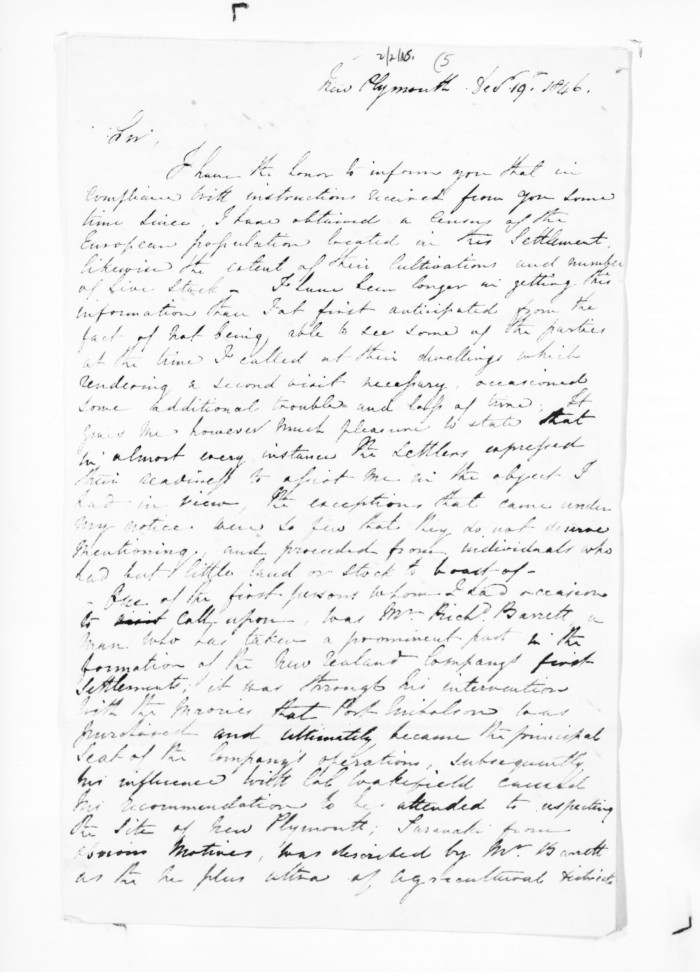 2/2/15. (5
New Plymouth Decr 19th 1846.
Sir,
I have the honor to inform you that in
compliance with instructions received from you some
time since, I have obtained a census of the
European population located in this Settlement.
likewise the extent of their Cultivations and number
of Live Stock – I have been longer in getting this
information than I at first anticipated from the
fact of not being able to see some of the parties
at the time I called at their dwellings which
rendering a second visit necessary, occasioned
some additional trouble and loss of time; It
gives me however much pleasure to state that
in almost every instance the settlers expressed
their readiness to assist me in the object I
had in view, the exceptions that came under
my notice were so few that they do not deserve
mentioning, and proceeded from individuals who
had but little land or stock to boast of –
– One of the first persons whom I had occasion
to visit call upon, was Mr Richd Barrett, a
man who has taken a prominent part in the
formation of the New Zealand Company's first
Settlements; it was through his intervention
with the Maories that Port Nicholson was
purchased and ultimately became the principal
Seat of the Company's operations, subsequently
his influence with Col Wakefield caused
his recommendation to be attended to respecting
the Site of New Plymouth; Taranaki from
obvious Motives, was described by Mr Barrett
as the ne plus ultra of agricultural districts